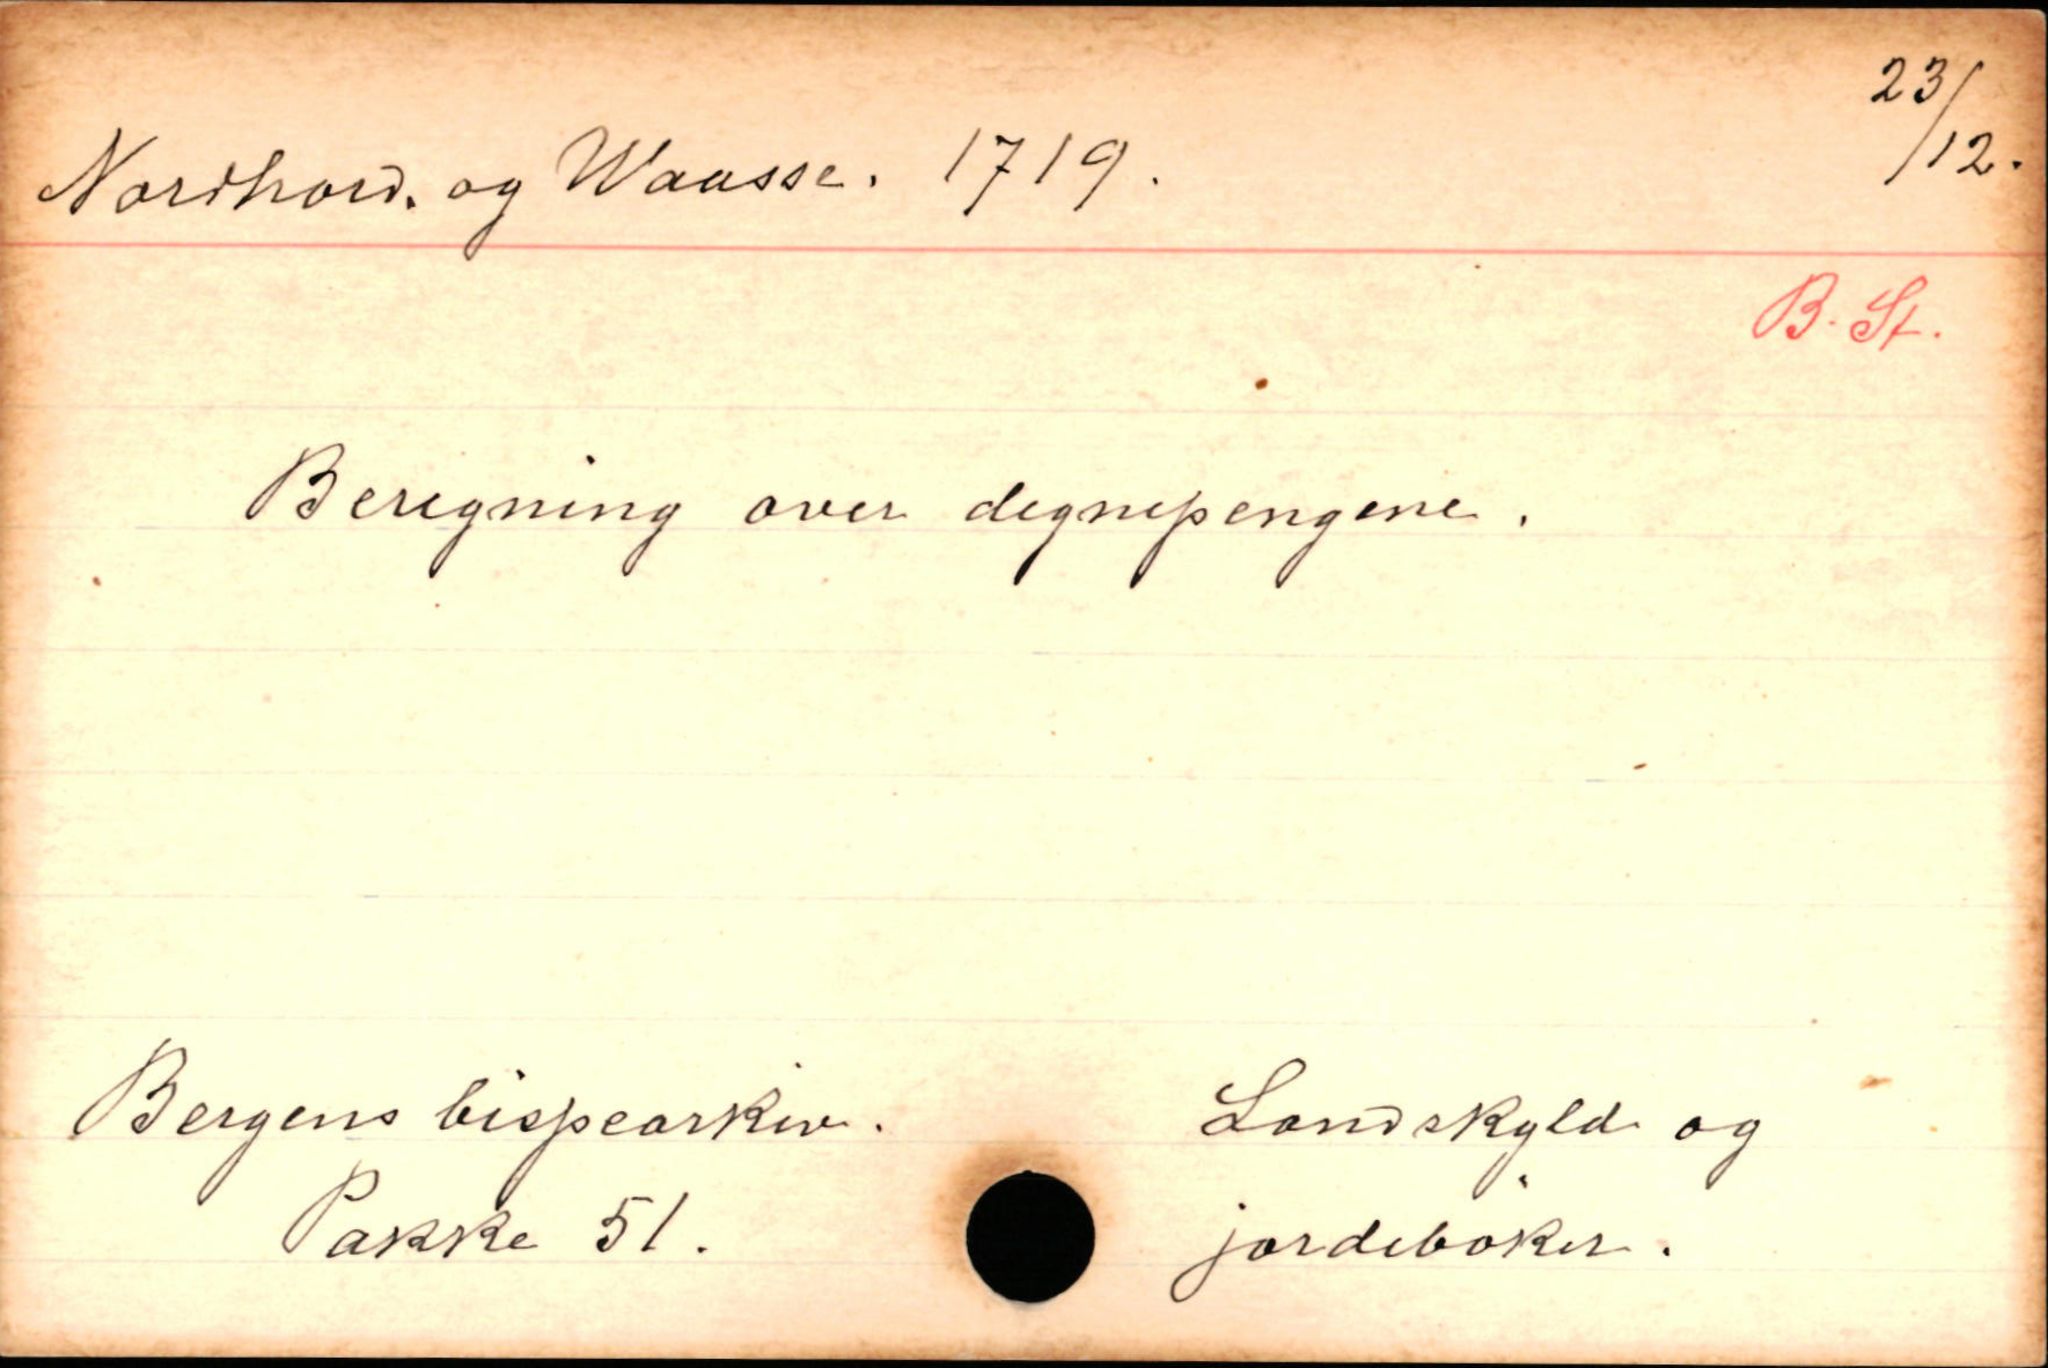 23/12.
Nordhord. og Waasse. 1719.
B. St.
Beregning over degnepengene.
Bergens bispearkiv.
Pakke 51.
Landskyld og
jordebøker.